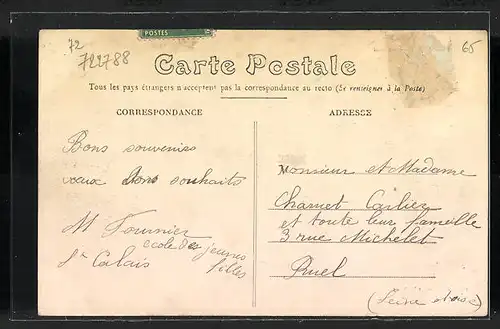 72
722788
POSTES
65
Carte Postale
Tous les pays étrangers n'acceptent pas la correspondance au recto (Se renseigner à la Poste)
CORRESPONDANCE
ADRESSE
Bons souvenirs
voeux Bons souhaits
M Fournier
école des jeunes
filles
St Calais
Monsieur et Madame
Charnet Carlier
et toute leur famille
3 rue Michelet
Ruel
(Seine et oise)